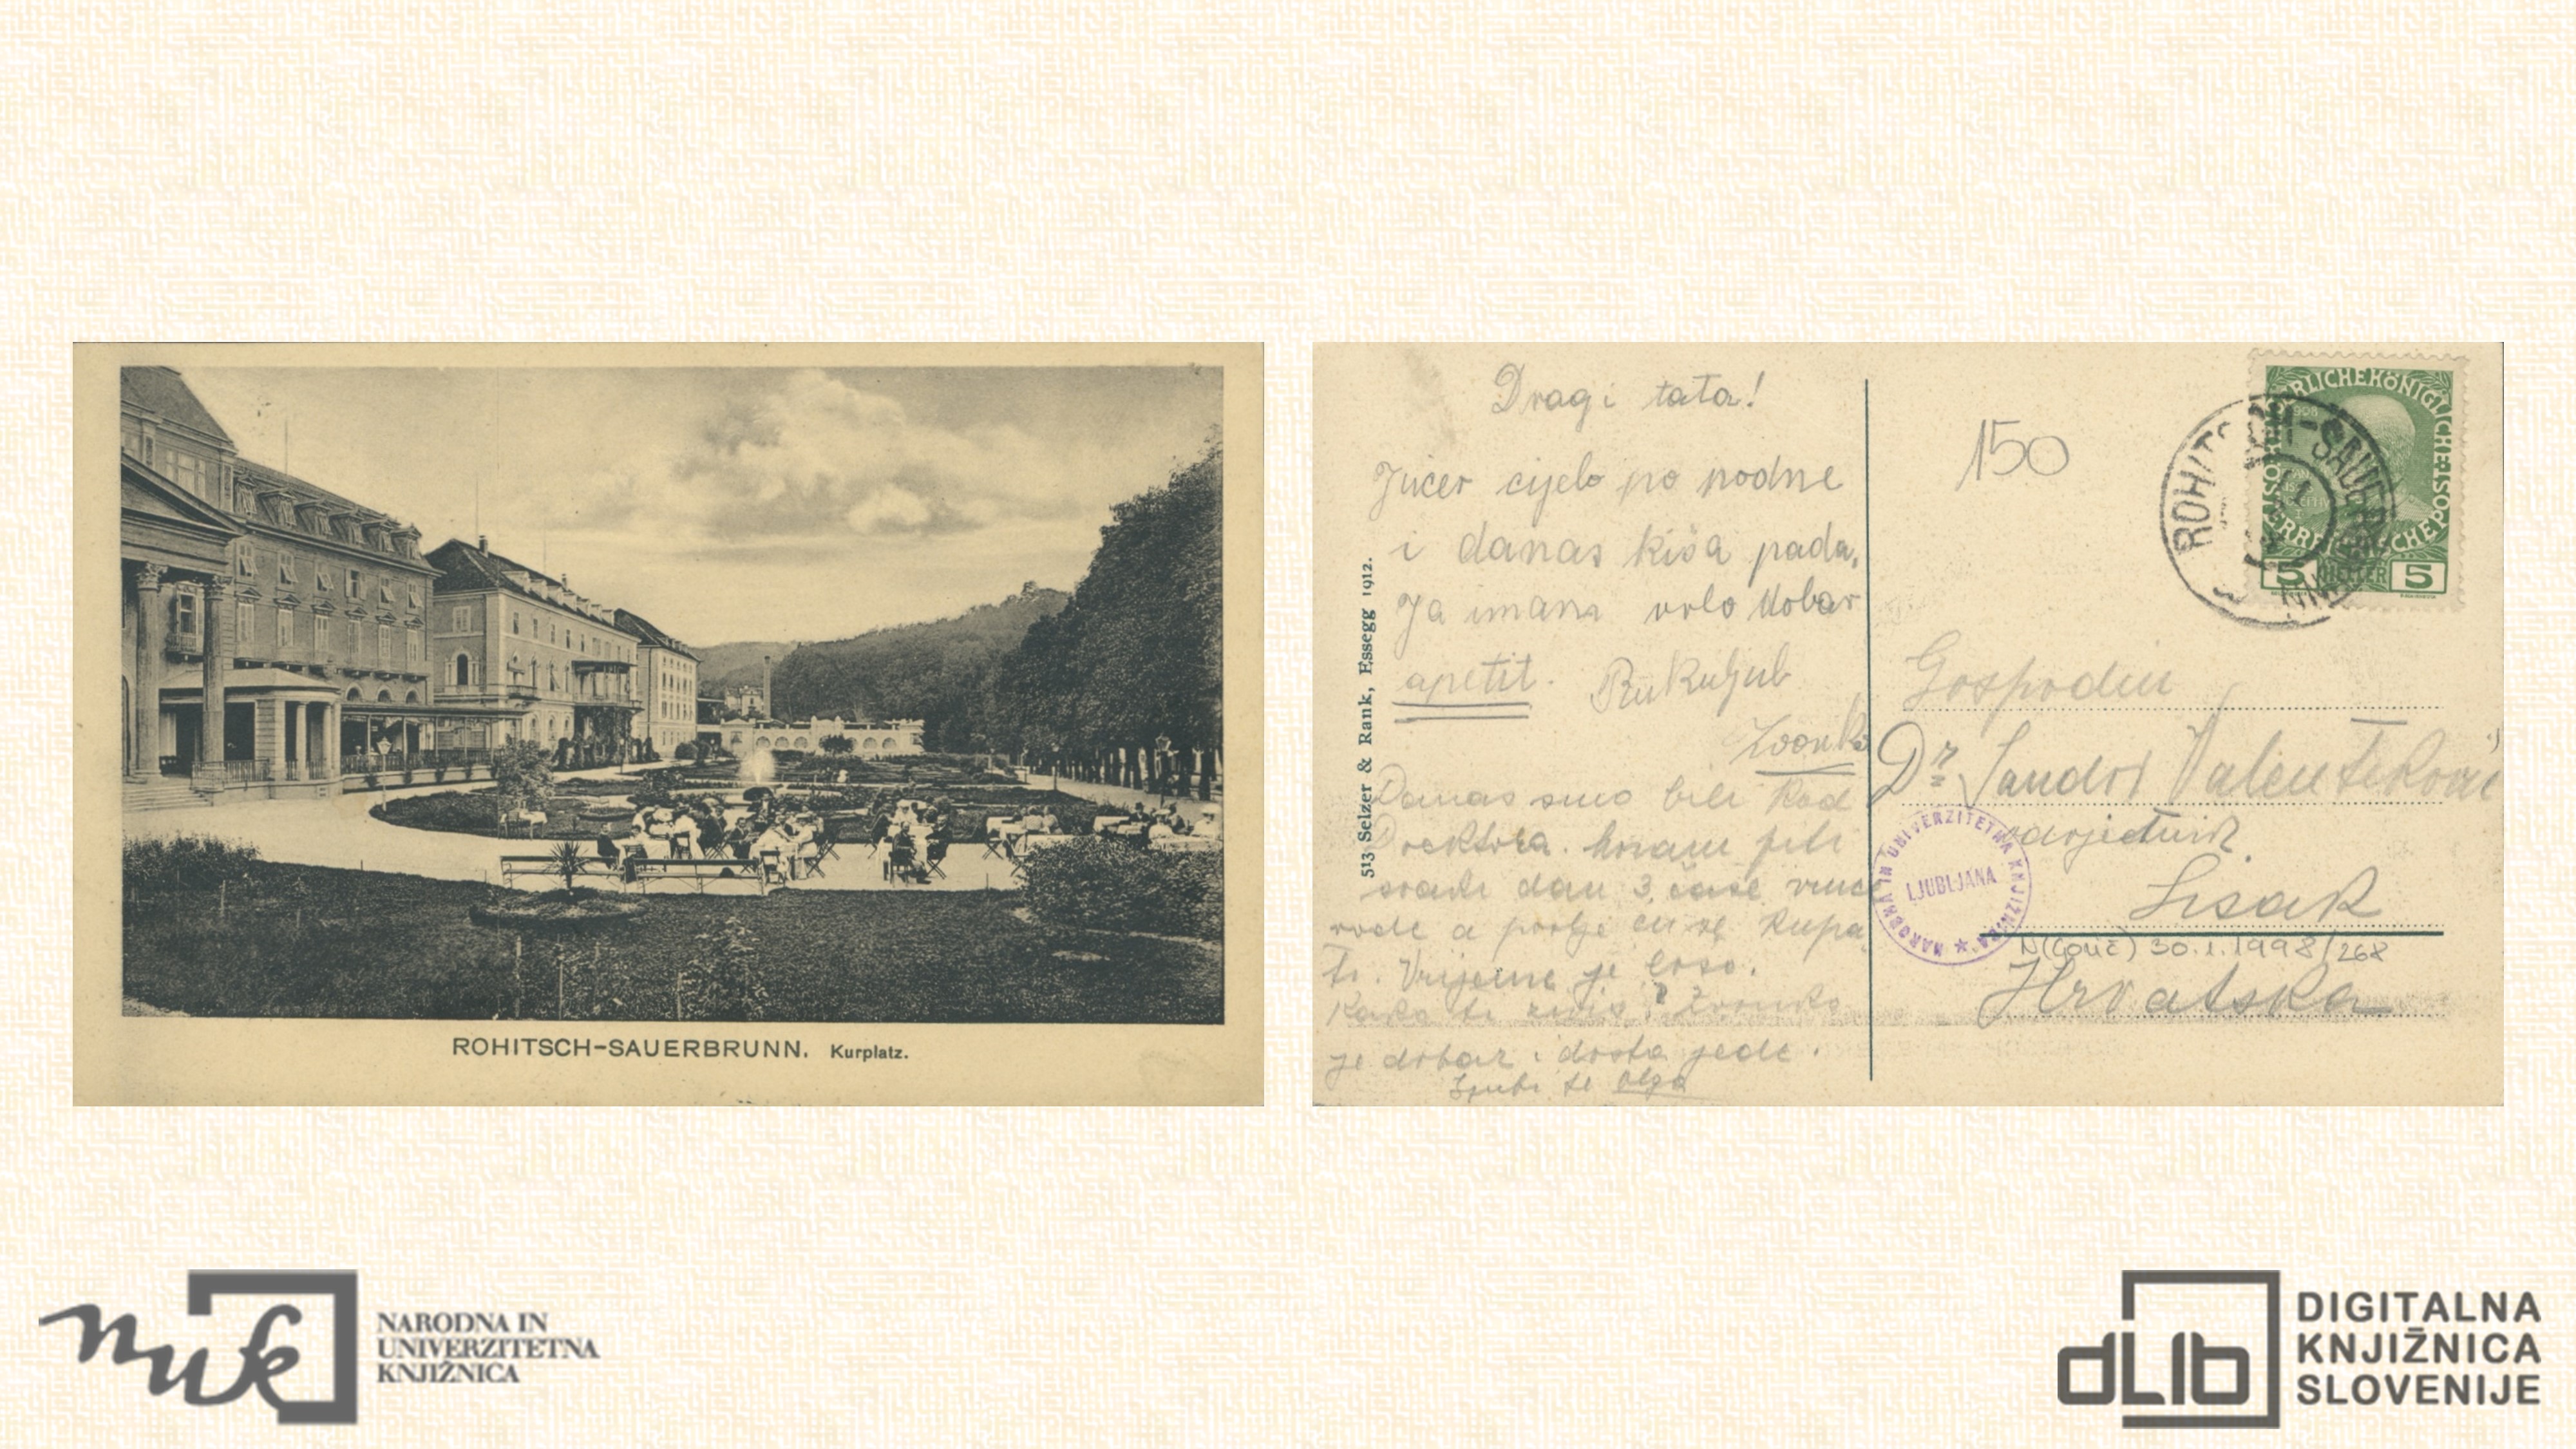 ROHITSCH-SAUERBRUNN. Kurplatz.
513 Selzer & Rank, Essegg 1912.
Dragi tata!
Jučer cijelo po podne
i danas kiša pada.
Ja imam vrlo dobar
apetit. Rukuljub
Zvonko
Danas smo bili kod
Doektora. Moram piti
svaki dan 3 čaše vruće
vode a poslje ću se kupa
ti. Vrijeme je loso.
Kako ti živiš? Zvonko
je dobar i dosta jede.
Ljubi te Olga
150
ROHITSCH-SAUERBRUNN
5 HELLER 5
Gospodin
Dr Sandor Valenteković
odvjetnik
Sisak
Hrvatska
NARODNA IN UNIVERZITETNA KNJIŽNICA
LJUBLJANA
30.1.1998/268
nuk
NARODNA IN
UNIVERZITETNA
KNJIŽNICA
dLib
DIGITALNA
KNJIŽNICA
SLOVENIJE